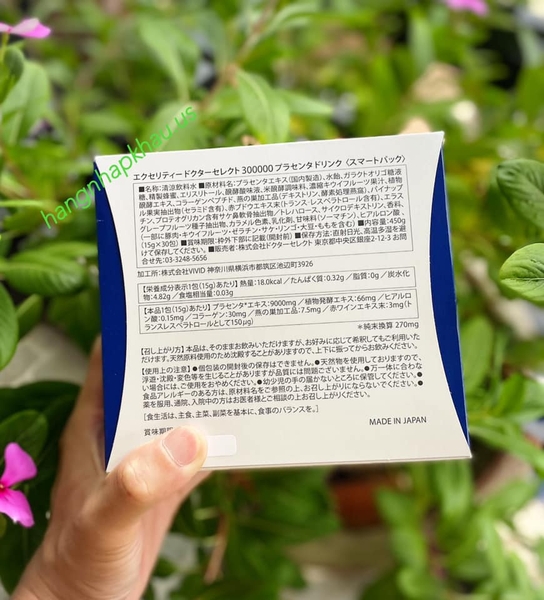 hangnhapkhau.us
エクセリティードクターセレクト300000 プラセンタドリンク〈スマートパック〉
■名称:清涼飲料水 ■原材料名:プラセンタエキス(国内製造)、水飴、ガラクトオリゴ糖液
糖、精製蜂蜜、エリスリトール、醗酵酸味液、米醗酵調味料、濃縮キウイフルーツ果汁、植物
醗酵エキス、コラーゲンペプチド、燕の巣加工品(デキストリン、燕の巣酵素処理燕窩)、パイナップ
ル果実抽出物(セラミド含有)、赤ブドウエキス末(トランス-レスベラトロール含有)、エラス
チン、プロテオグリカン含有サケ鼻軟骨抽出物/トレハロース、サイクロデキストリン、香料、
グレープフルーツ種子抽出物、カラメル色素、乳化剤、甘味料(ソーマチン)、ヒアルロン酸、
(一部に豚肉・キウイフルーツ・ゼラチン・さけ・りんご・大豆・ももを含む) ■内容量:450g
(15g×30包) ■賞味期限:枠外下部に記載(開封前) ■保存方法:直射日光、高温多湿を避
けて保存してください。 ■販売者:株式会社ドクターセレクト 東京都中央区銀座2-12-3 お問
合せ先:03-3248-5656
加工所:株式会社VIVID 神奈川県横浜市都筑区池辺町3926
【栄養成分表示1包(15g)あたり】熱量:18.0kcal/たんぱく質:0.32g/脂質:0g/炭水化
物:4.82g/食塩相当量:0.03g
【本品1包(15g)あたり】プラセンタ*エキス:9000mg/植物発酵エキス:66mg/ヒアルロ
ン酸:0.15mg/コラーゲン:30mg/燕の巣加工品:7.5mg/赤ワインエキス末:3mg(ト
ランスレスベラトロールとして150μg)
*純末換算 270mg
【召し上がり方】本品は、そのままお飲みいただけますが、お好みに応じて希釈してもご利用いた
だけます。天然原料使用のため沈殿することがありますので、上下に振ってからお飲みください。
【使用上の注意】●個包装の開封後の保存はできません。●天然物を使用しておりますので、
浮遊・沈殿・変色等を生じることがありますが品質には問題ございません。●万一体に合わな
い場合には、ご使用をおやめください。●幼少児の手の届かないところに保管してください。●
食品アレルギーのある方は、原材料名をご参照の上、お召し上がりにならないでください。●
薬を服用、通院、入院中の方はお医者様とご相談の上お召し上がりください。
[食生活は、主食、主菜、副菜を基本に、食事のバランスを。]
MADE IN JAPAN
賞味期